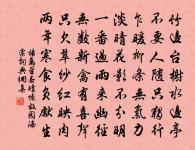 竹邊台榭水邊亭
不要人隨只獨行
乍暖柳條無氣力
淡晴花影不分明
一番過雨來幽徑
無數新禽有喜聲
只欠翠紗紅映肉
兩年寒食負先生
楊萬里春晴懷故園海
棠詞典網集